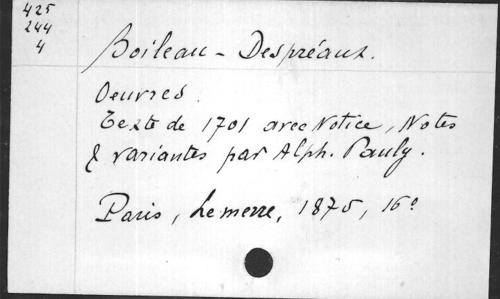 425
244
4
Boileau - Despréaux.
Oeuvres.
Texte de 1701 avec Notice, Notes
& variantes par Alph. Pauly.
Paris, Lemerre, 1875, 16°